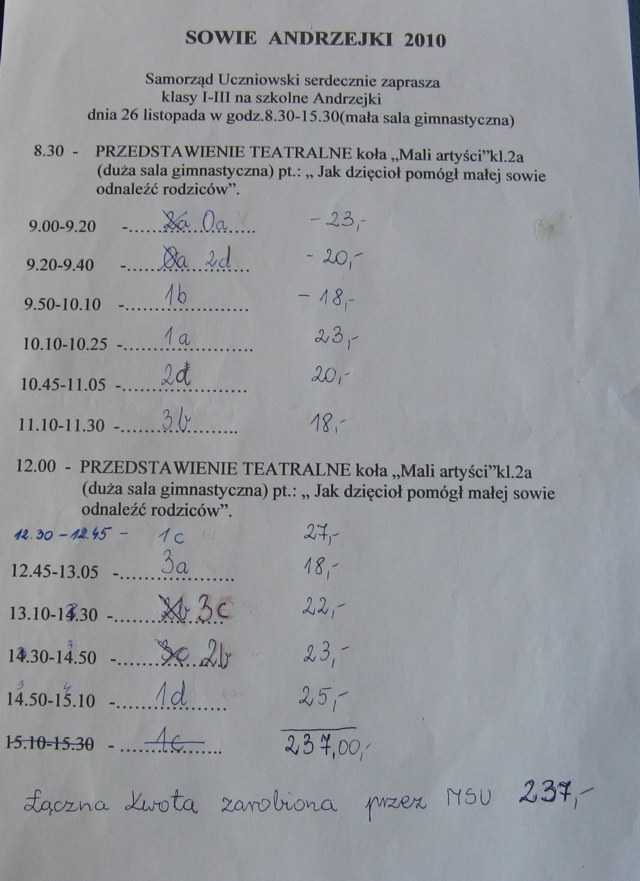 SOWIE ANDRZEJKI 2010
Samorząd Uczniowski serdecznie zaprasza
klasy I-III na szkolne Andrzejki
dnia 26 listopada w godz.8.30-15.30(mała sala gimnastyczna)
8.30 - PRZEDSTAWIENIE TEATRALNE koła „Mali artyści”kl.2a
(duża sala gimnastyczna) pt.: „ Jak dzięcioł pomógł małej sowie
odnaleźć rodziców”.
9.00-9.20 -......2a 0a...... - 23,-
9.20-9.40 -......0a 2d...... - 20,-
9.50-10.10 -...... 1b ...... - 18,-
10.10-10.25 -...... 1a ...... 23,-
10.45-11.05 -...... 2d ...... 20,-
11.10-11.30 -...... 3b ...... 18,-
12.00 - PRZEDSTAWIENIE TEATRALNE koła „Mali artyści”kl.2a
(duża sala gimnastyczna) pt.: „ Jak dzięcioł pomógł małej sowie
odnaleźć rodziców”.
12.30 - 12.45 - 1c 27,-
12.45-13.05 -...... 3a ...... 18,-
13.10-13.30 -...... 2b 3c ...... 22,-
13.30-13.50 -...... 3c 2b ...... 23,-
13.50-14.10 -...... 1d ...... 25,-
15.10-15.30 -...... 1c ...... 237,00,-
Łączna kwota zarobiona przez MSU 237,-